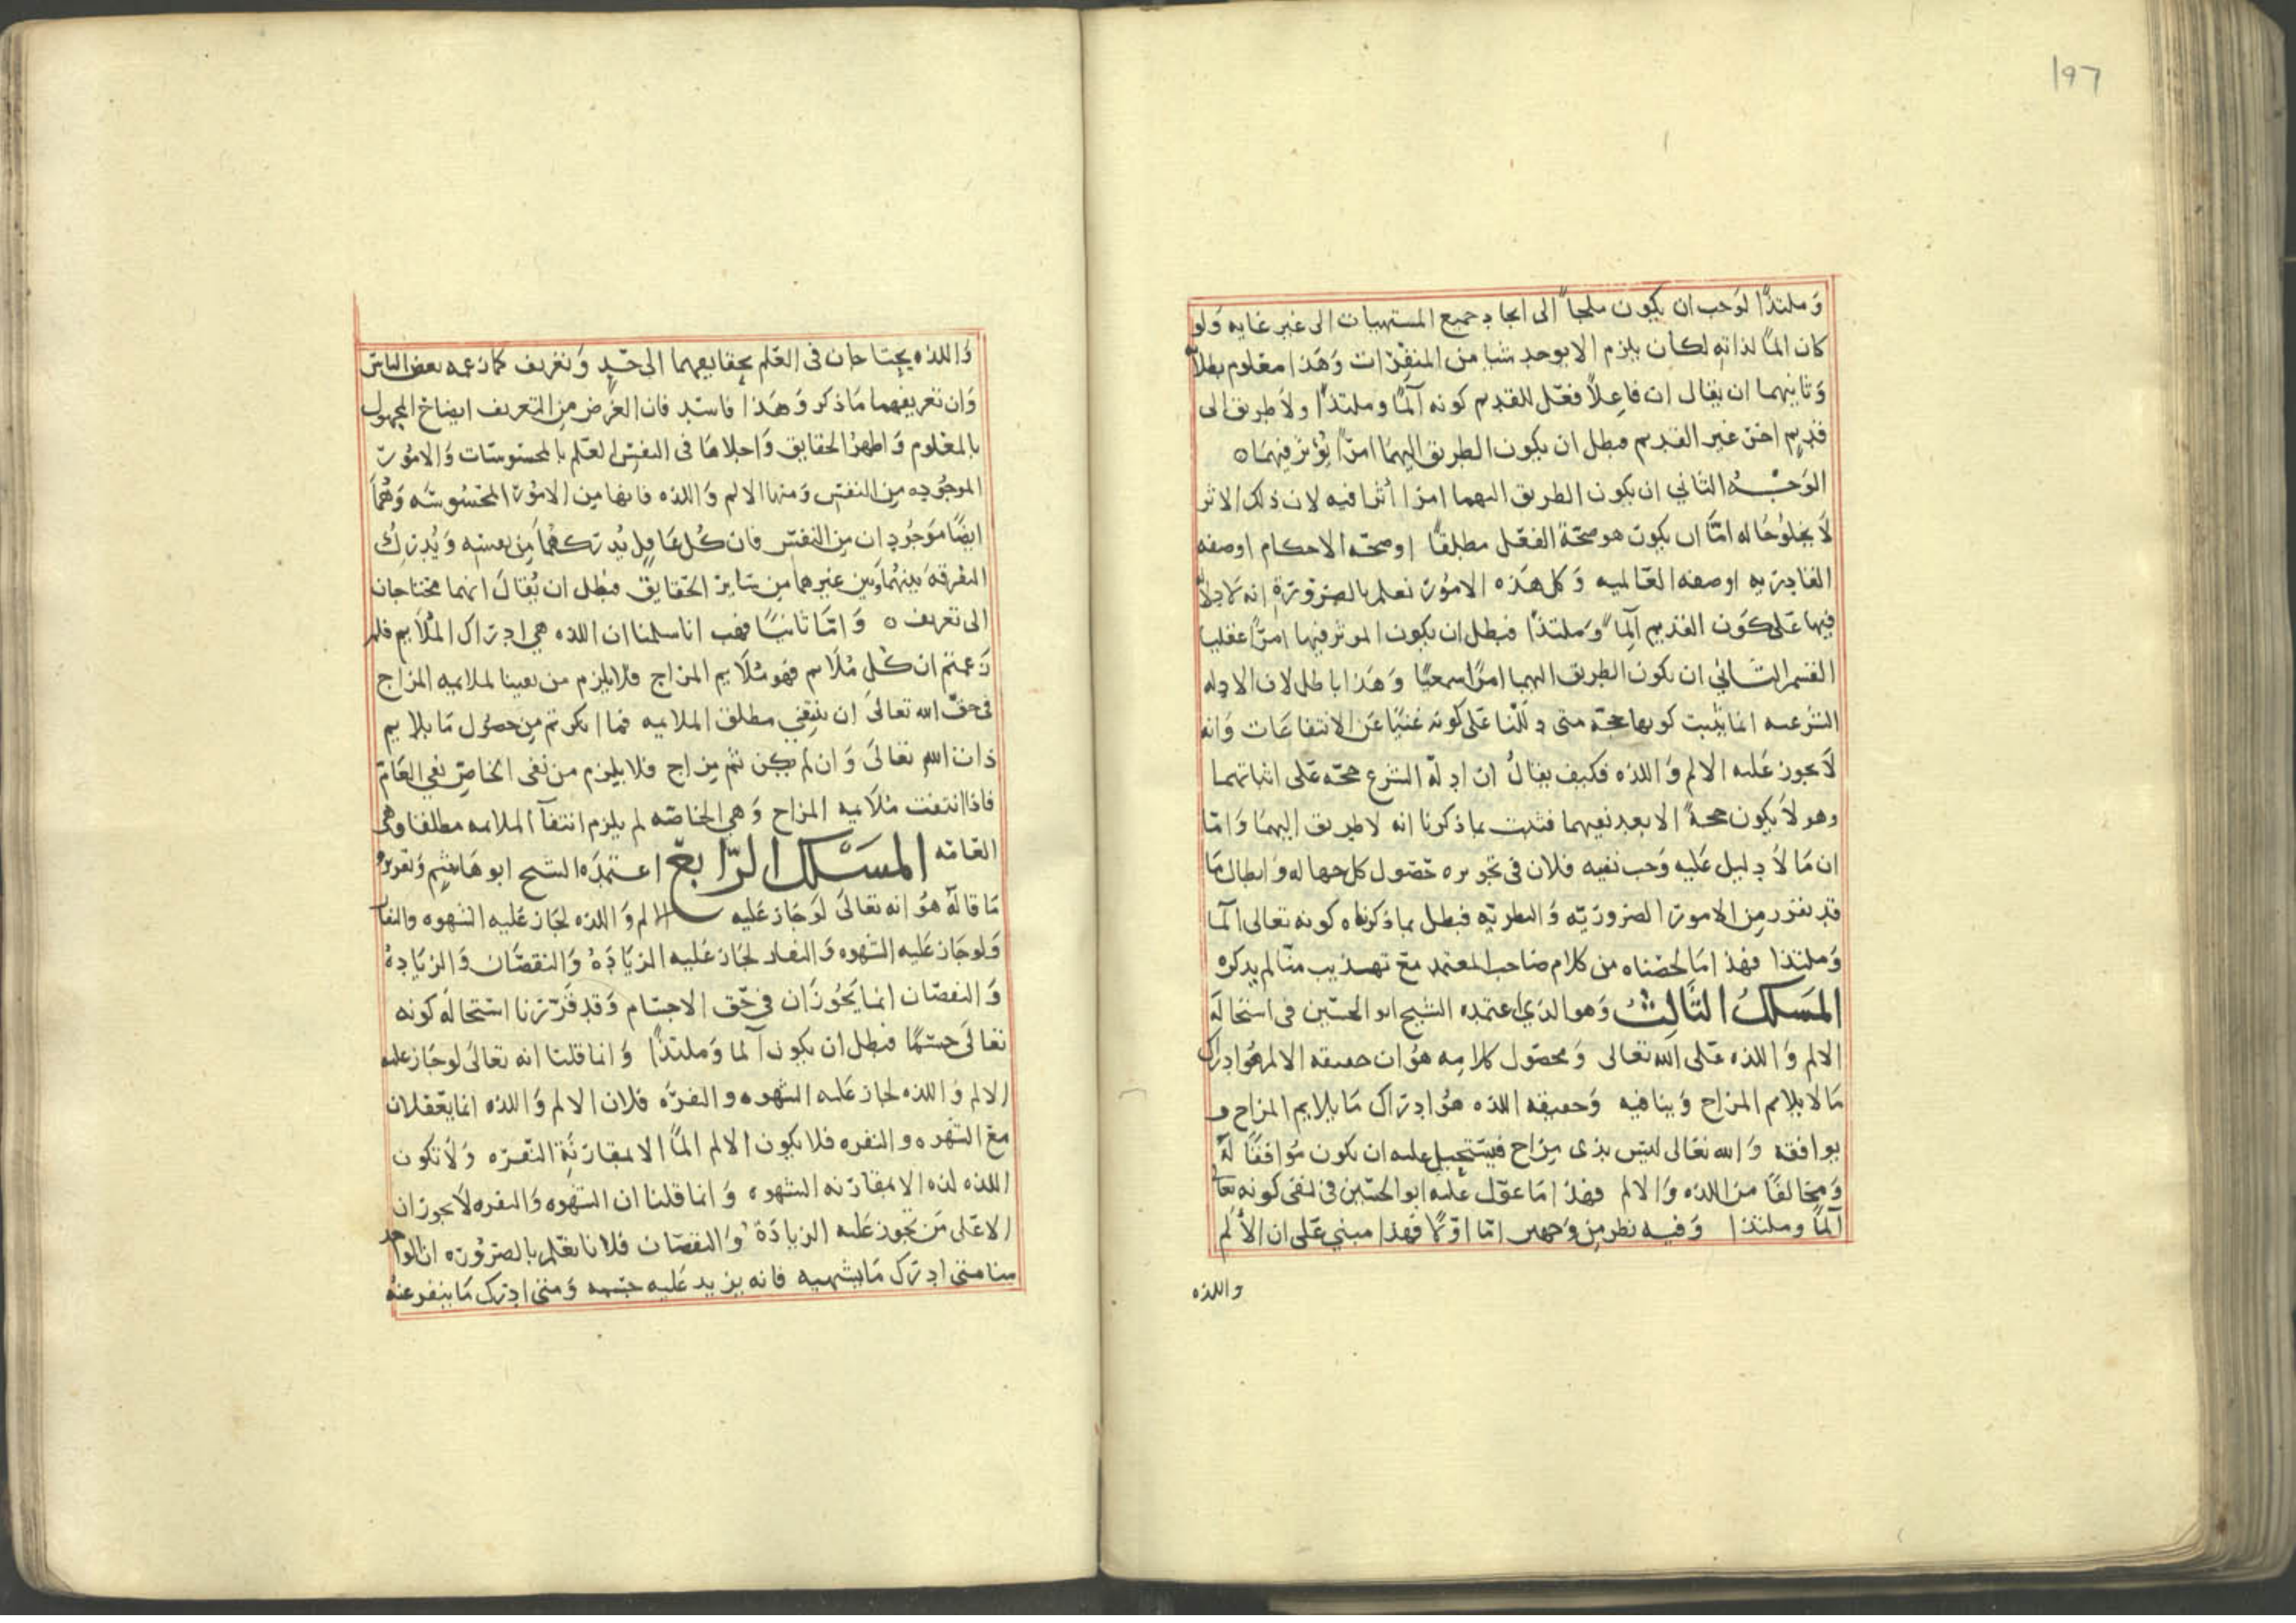 197
وَملتذًّا لوَجب ان يكون ملجأً الى ايجاد جميع المشتهيات الى غير غايه وَلو
كان المًا لذاته لكان يلزم الا يوجد شيا من المنفرات وَهَذا معلوم بطلانه
وَثانيهما ان يقال ان فاعِلاً فعَل للقديم كونه آلمًا وملتذًّا ولاَ طريق الى
قديمٍ اخرَ غير القديم فبطل ان يكون الطريق اليهمَا امرًا يُؤثر فيهمَا ه
الوَجْـــهُ الثاني ان يكون الطريق اليهما امرًا أثرا فيه لان ذلك الاثر
لاَ يخلوُ حَاله امَّا ان يكون هو صحّة الفعَل مطلقًا اوصحّه الاحكام اوصفه
القادريه اوصفه العَالميه وَكل هَذه الامُور نعلم بالضرورَة انه لاَ دلاله
فيها عَلى كوَن القديم آلِمًا وَملتذًا فبطل ان يكون الموثر فيهما امرًا عقليا
القسم الثـاني ان يكون الطريق اليهما امرًا سمعيًا وَهَذا باطل لان الادله
الشرعيه انما يثبت كونها حجّه متى دَلّلنا عَلى كونه غنيًا عَن الانتفاعَات وَانه
لاَ يجوز عَليه الالم وَاللذه فكيف يقالُ ان ادلّه الشرع حجّه عَلى اثباتهما
وهو لاَ يكون حجةً الا بعد نفيهما فثبت بما ذكرنا انه لا طريق اليهمَا وَامّا
ان مَا لاَ دليل عَليه وَجب نفيه فلان في تجويزه حَصول كل جهاله وَابطال مَا
قد تقرر مِن الامور الضروريّه وَالنظريّه فبطل بما ذكرناه كونه تعالى آلمًا
وَملتذا فهذا مَا لخصناه من كلام صَاحب المعتمد معَ تهذيب منّا لم يذكره
المَسَلكُ الثَّالِثُ وَهو الذي اعتمده الشيح ابو الحسَين في استحالَه
الالم وَاللذه عَلى الله تعالى وَمحصَول كلامه هوُ ان حقيقه الالم هُوَ ادراك
مَا لا يلايم المزاج وَينافيه وَحقيقه اللذه هوُ ادرَاك مَا يلايم المزاج و
يوافقه وَالله تعَالى ليَس بذى مزاج فيَستحيل عليه ان يكون مُوَافقًا لهُ
وَمخالفًا من اللذه وَالالم فهذا مَا عوّل عَليه ابو الحسَين في نفي كونه تعا
آلمًا وملتذا وَفيه نظر مِن وَجهين امّا اوّلاً فهذا مبني عَلى ان الأَلم
واللذه
وَاللذه يحتاجان في العَلم بحقايقهما الى حَدٍ وَتعَريف كما زعمه بعض الناسَ
وَان تعريفهما مَا ذكر وَهَذا فاسَد فان العرَض مِن التعريف ايضاح المجهول
بالمعَلوم وَاظهرُ الحقايق وَاجلاهَا في النفسِ العَلم بالمحسَوسَات وَالامُور
الموجُوده مِن النفسَ وَمنها الالم وَاللذه فانها مِن الامُور المحَسُوسَه وَهُمَا
ايضًا موَجُودان مِن النفسَ فان كُل عَاقِل يُدركهُمَا مِن نفسَه وَيُدرِكُ
التفرقَه بينهُمَا وَبَين غيرهما مِن سَاير الحَقايق فبَطل ان يُقالَ انهما محتاجان
الى تعريف ه وَامّا ثانيًا فهَب انا سلمنا ان اللذه هي ادرَاك المُلاَيم فلم
زعَمتم ان كُل مُلاَيم فهو مُلاَيم المزاج فلا يلزم من نفينا لملايمه المزاج
في حقّ الله تعالىَ ان ينتفي مطلق الملايمه فما انكرتم مِن حصُول مَا يلايم
ذات اللهِ تعالىَ وَان لم يكن ثَم مِزاج فلا يلزم من نفى الخاصّ نفي العَام
فاذا انتفت مُلاَيمه المزاج وَهي الخاصّه لم يلزم انتفآ الملايمه مطلقا وهى
العَامّه المسَلك الرّابعَ اعتمَده الشيح ابو هَاشِم وَتقريرُ
مَا قالَه هوُ انه تعالىَ لوَجَاز عَليه الالم وَاللذه لجَاز عَليه الشهوه والنفار
وَلو جَاز عَليه الشهوه وَالنفار لجَاز عَليه الزيَادَةُ وَالنقصَان وَالزيَادهُ
وَالنقصَان انما يَجُوزَان في حَق الاجسَام وَقد قَرّرنا استحَالهَ كونه
تعَالىَ جسَمًا فبطل ان يكون آلما وَملتذًّا وَانما قلنا انه تعَالىَ لوجَاز عليه
الالم وَاللذه لجاز عَليه الشهوه والنفرَه فلان الالم وَاللذه انما يعَقلان
معَ الشهوه والنفره فلا يكون الالم المًا الا بمقارَنةِ النفرَه وَلاَ تكون
اللذه لذه الا بمقارنه الشهوه وَانما قلنا ان الشهوه وَالنفره لاَ يجوزان
الا عَلى مَن يجَوز عَليه الزيادَة وَالنقصَان فلانا نعَلم بالضرُوره ان الواحد
منا متى ادرَك مَا يشتهيه فانه يزيد عَليه جسَمه وَمتى ادرَك مَا ينفر عنهُ